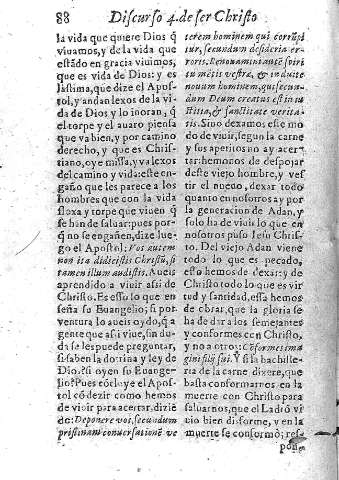 88 Discurso 4. de ser Christo
la vida que quiere Dios q̃
viuamos, y de la vida que
estádo en gracia viuimos,
que es vida de Dios: y es
lastima, que dize el Apos-
tol, y andan lexos de la vi-
da de Dios y lo inoran, q̃
el torpe y el auaro piensa
que va bien, y por camino
derecho, y que es Chris-
tiano, oye missa, y va lexos
del camino y vida: este en-
gaño que les parece a los
hombres que con la vida
floxa y torpe que viuen q̃
se han de saluar: pues por-
q̃ no se engañen, dize lue-
go el Apostol: Vos autem
non ita didicistis Christũ, si
tamen illum audistis. Aueis
aprendido a viuir assi de
Christo. Es esso lo que en-
seña su Euangelio; si por-
ventura lo aueis oydo, q̃ a
gente que assi viue, sin du-
da se les puede preguntar,
si saben la dotrina y ley de
Dios? si oyen su Euange-
lio? Pues cõcluye el Apos-
tol cõ dezir como hemos
de viuir para acertar, dizié
de: Deponere vos, secundum
pristinam conuersationẽ ve
terem hominem qui corrũpi
tur, secundum desideria er-
roris. Renouamini autẽ spiri-
tu mẽtis vestræ, & induite
nouum hominem, qui secun-
dum Deum creatus est in iu
stitia, & sanctitate verita-
tis. Sino dexamos este mo
do de viuir, segun la carne
y sus apetitos no ay acer-
tar: hemonos de despojar
deste viejo hombre, y ves
tir el nueuo, dexar todo
quanto en nosotros ay por
la generacion de Adan, y
solo ha de viuir lo que en
nosotros puso Iesu Chris-
to. Del viejo Adan viene
todo lo que es pecado,
esto hemos de dexar: y de
Christo todo lo que es vir
tud y santidad, essa hemos
de obrar, que la gloria se
ha de dar a los semejantes
y conformes con Christo,
y no a otros: Cõformes ima
gini filij sui. Y si la bachille-
ria de la carne dixere, que
basta conformarnos en la
muerte con Christo para
saluarnos, que el Ladrõ vi
uio bien disforme, y en la
muerte se conformò; res-
pon